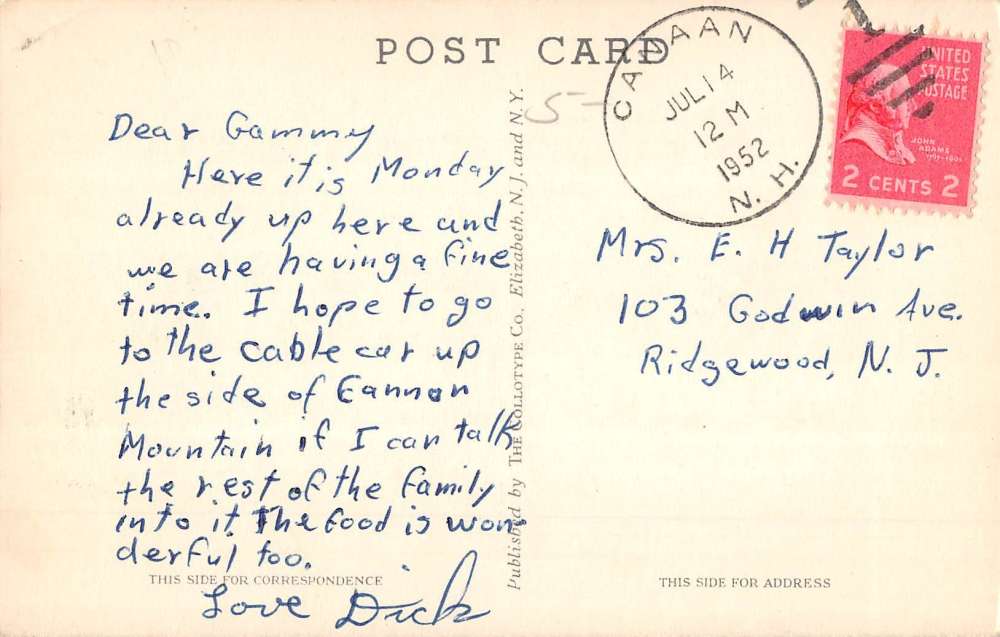 POST CARD
CANAAN
JUL 14
12 M
1952
N. H.
UNITED
STATES
POSTAGE
JOHN
ADAMS
2 CENTS 2
5-
Dear Gammy
Here it is Monday
already up here and
we are having a fine
time. I hope to go
to the cable car up
the side of Cannon
Mountain if I can talk
the rest of the family
into it. The food is won-
derful too.
Love Dick
THIS SIDE FOR CORRESPONDENCE
Published by THE COLLOTYPE Co., Elizabeth, N.J. and N.Y.
Mrs. E. H Taylor
103 Godwin Ave.
Ridgewood, N. J.
THIS SIDE FOR ADDRESS